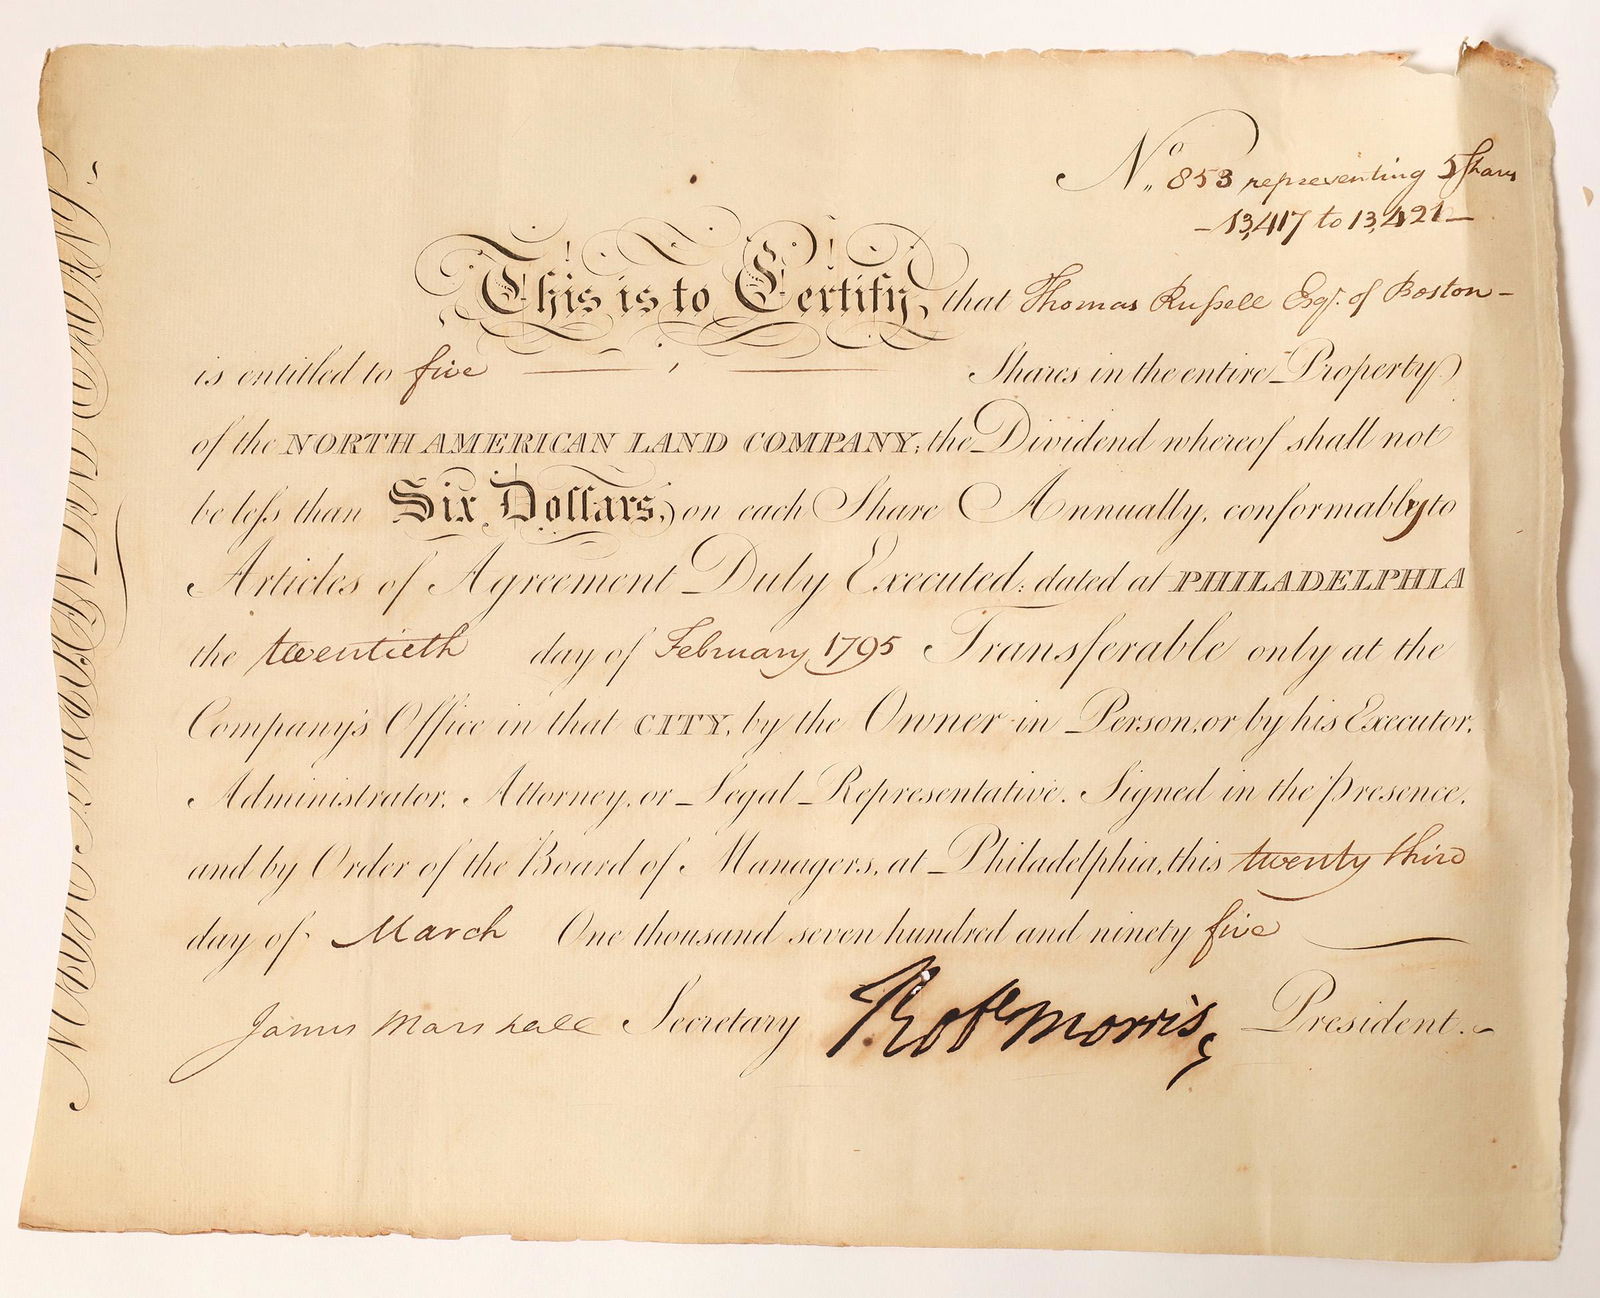 No. 853 representing 5 Shares
13,417 to 13,421
This is to Certify, that Thomas Russell Esqr. of Boston
is entitled to five Shares in the entire Property
of the NORTH AMERICAN LAND COMPANY; the Dividend whereof shall not
be less than Six Dollars, on each Share Annually, conformably to
Articles of Agreement Duly Executed; dated at PHILADELPHIA
the twentieth day of February 1795 Transferable only at the
Company's Office in that CITY, by the Owner in Person, or by his Executor,
Administrator, Attorney, or Legal Representative. Signed in the presence,
and by Order of the Board of Managers, at Philadelphia, this twenty third
day of March One thousand seven hundred and ninety five
James Marshall Secretary Robt Morris, President.